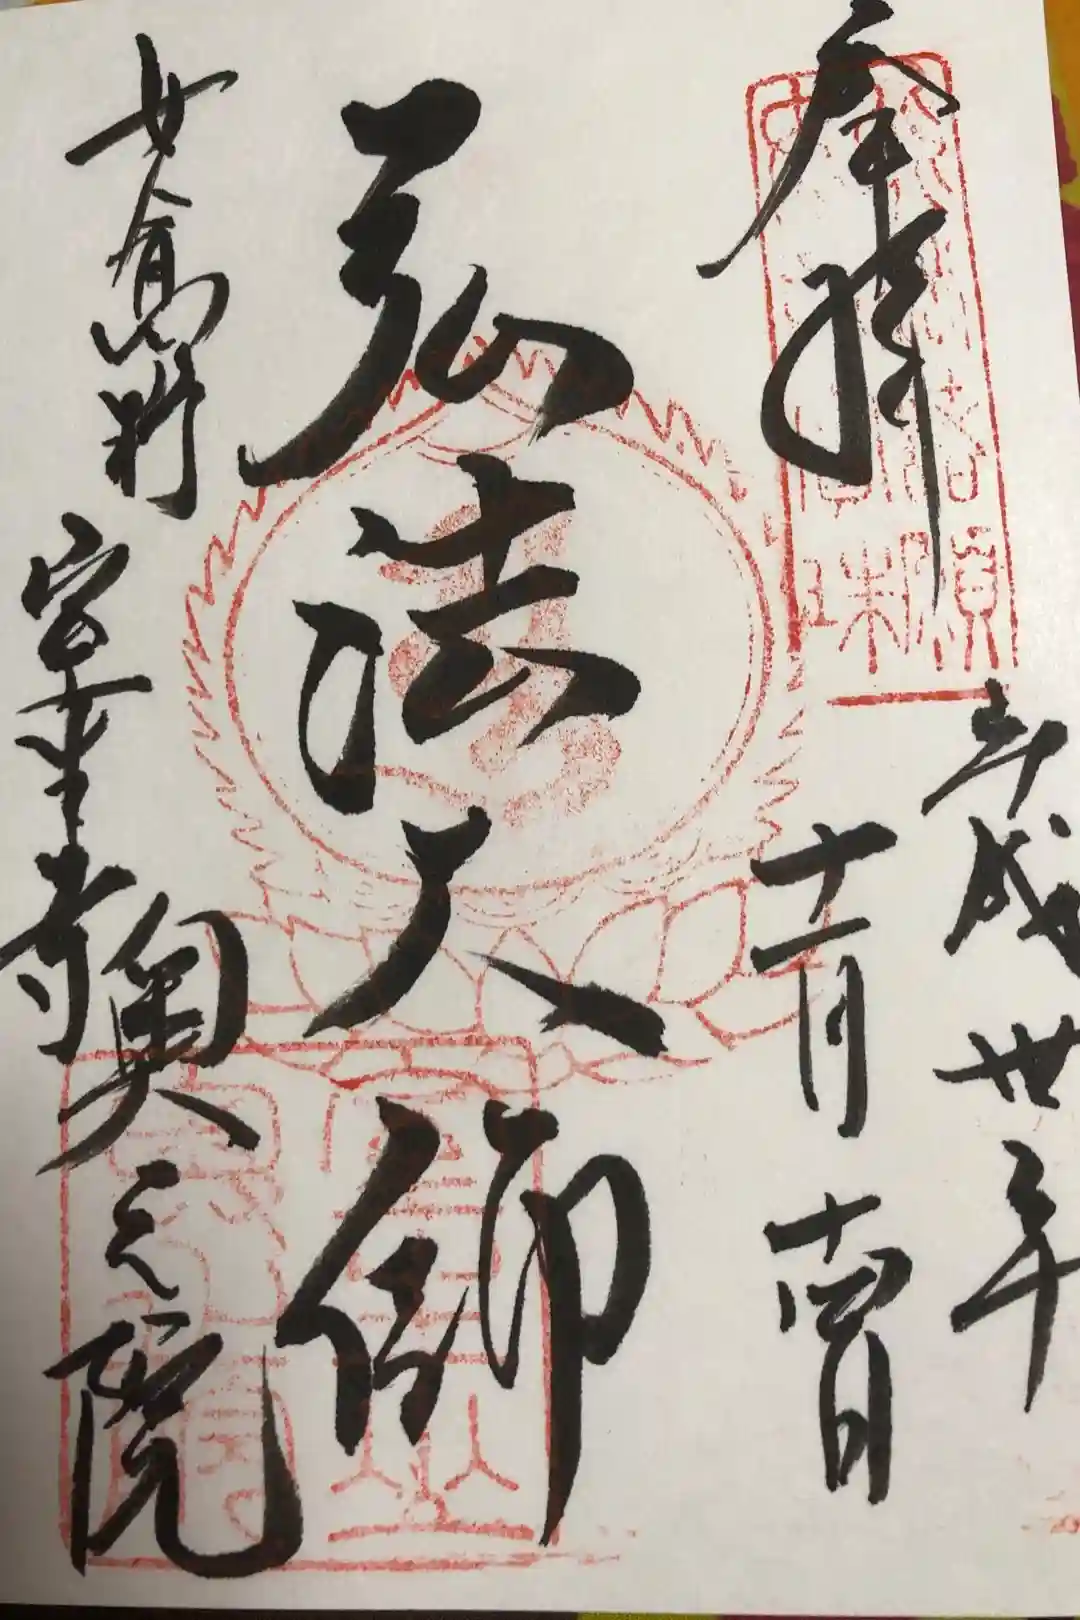 奉拝
平成卅年
十一月十四日
弘法大師
女高野
室生寺
奥之院